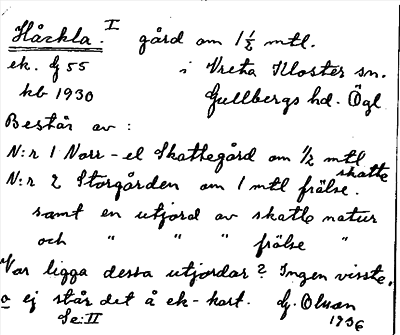 Håckla. I gård om 1 1/2 mtl.
ek. G 55 i Vreta Kloster sn.
kb 1930 Gullbergs hd. Ögl
Består av :
N:r 1 Norr-el Skattegård om 1/2 mtl skatte
N:r 2 Storgården om 1 mtl frälse.
samt en utjord av skatte natur
och " " " frälse "
Var ligga dessa utjordar? Ingen visste,
o ej står det å ek-kart. G. Olson
Se: II 1936